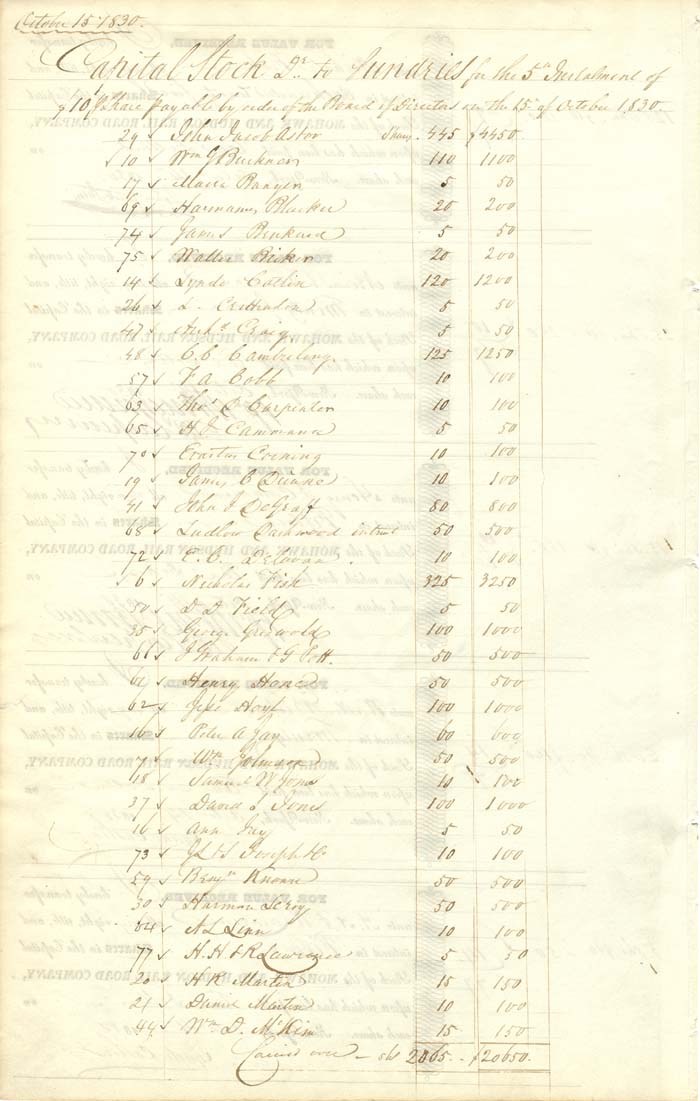 October 15 1830.
Capital Stock Dr. to Sundries for the 5th Instalment of
$10 P Share payable by order of the Board of Directors on the 15th of October 1830.
29 John Jacob Astor Shares 445 $4450
10 Wm G Bucknor 110 1100
17 Maria Banyer 5 50
69 Harmanus Bleecker 20 200
74 James 5 50
75 Walter Bicker 20 200
14 Lynde Catlin 120 1200
26 L. Crittenden 5 50
47 Archd Craig 5 50
48 C. C. Cambreleng 125 1250
57 F A Cobb 10 100
63 Thos Carpenter 10 100
65 H I Cammann 5 50
70 Erastus Corning 10 100
19 James C Duane 10 100
41 John I DeGraff 80 800
68 Ludlow Dashwood 50 500
72 E. C. Delavan 10 100
6 Nicholas Fish 325 3250
50 D D Field 5 50
35 George Griswold 100 1000
66 J Graham & G Pott. 50 500
61 Henry Hone 50 500
62 Jesse Hoyt 100 1000
16 Peter A Jay 60 600
7 Wm Johnson 50 500
18 Samuel W Jones 10 100
37 David S Jones 100 1000
16 Ann Jay 5 50
73 J L & S Joseph & Co 10 100
59 Benjn Knower 50 500
30 Harman Leroy 50 500
84 A L Linn 10 100
77 H. H & R Lawrence 5 50
20 H R Martin 15 150
21 Daniel Martin 10 100
44 Wm D. McKim 15 150
Carried over shs 2065 $20650.
FOR VALUE RECEIVED
MOHAWK AND HUDSON RAIL ROAD COMPANY,